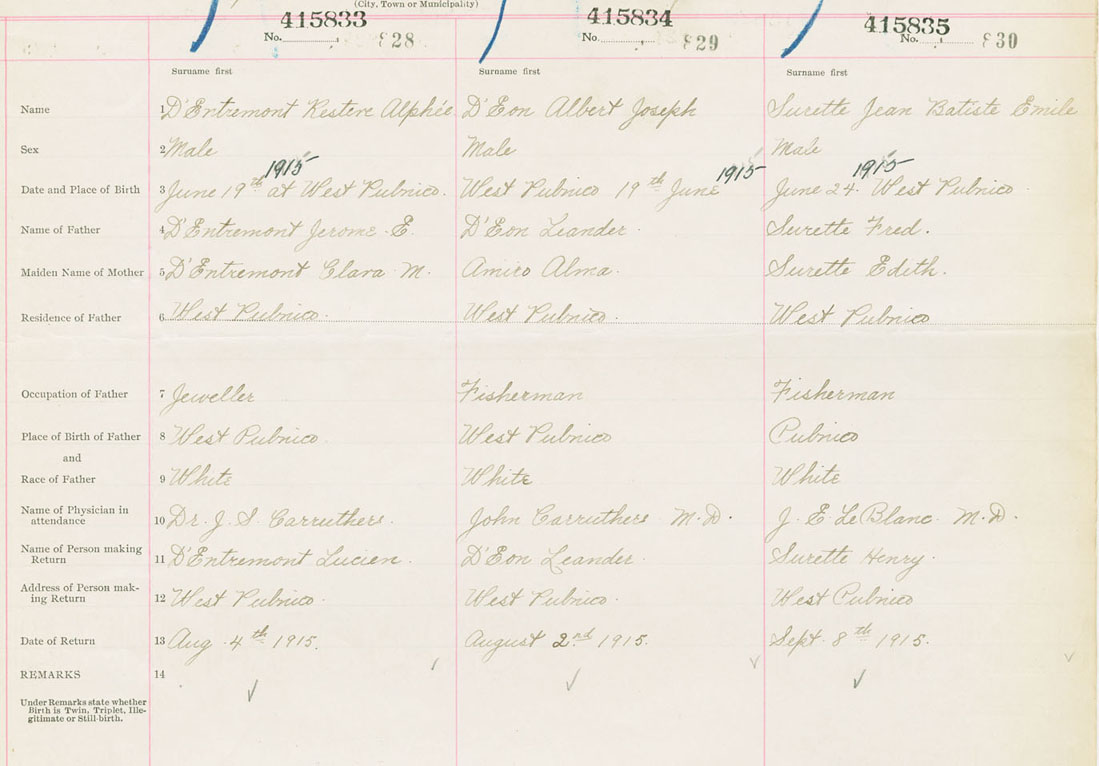 (City, Town or Municipality)
415833 415834 415835
No. 828 No. 829 No. 830
Surname first Surname first Surname first
Name 1 D'Entremont Restere Alphée D'Eon Albert Joseph Surette Jean Batiste Emile
Sex 2 Male Male Male
1915 1915 1915
Date and Place of Birth 3 June 19th at West Pubnico. West Pubnico 19th June June 24. West Pubnico
Name of Father 4 D'Entremont Jerome E. D'Eon Leander. Surette Fred.
Maiden Name of Mother 5 D'Entremont Clara M. Amiro Alma. Surette Edith.
Residence of Father 6 West Pubnico. West Pubnico. West Pubnico
Occupation of Father 7 Jeweller Fisherman Fisherman
Place of Birth of Father 8 West Pubnico. West Pubnico Pubnico
and
Race of Father 9 White White White
Name of Physician in
attendance 10 Dr. J. S. Carruthers. John Carruthers M.D. J. E LeBlanc. M.D.
Name of Person making
Return 11 D'Entremont Lucien. D'Eon Leander. Surette Henry.
Address of Person mak-
ing Return 12 West Pubnico. West Pubnico. West Pubnico
Date of Return 13 Aug. 4th 1915. August 2nd 1915. Sept. 8th 1915.
REMARKS 14
Under Remarks state whether
Birth is Twin, Triplet, Ille-
gitimate or Still-birth.